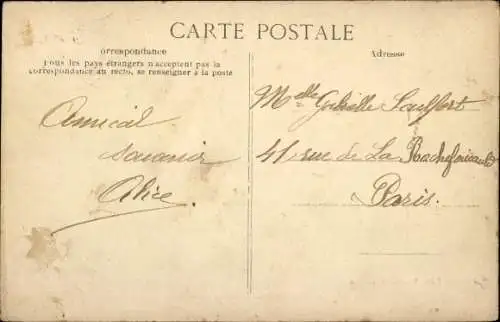 CARTE POSTALE
orrespondance
Tous les pays étrangers n'acceptent pas la
correspondance au recto, se renseigner à la poste
Amical
souvenir
Alice
Adresse
Melle Gabrielle
41 rue de La Rochefoucauld
Paris.